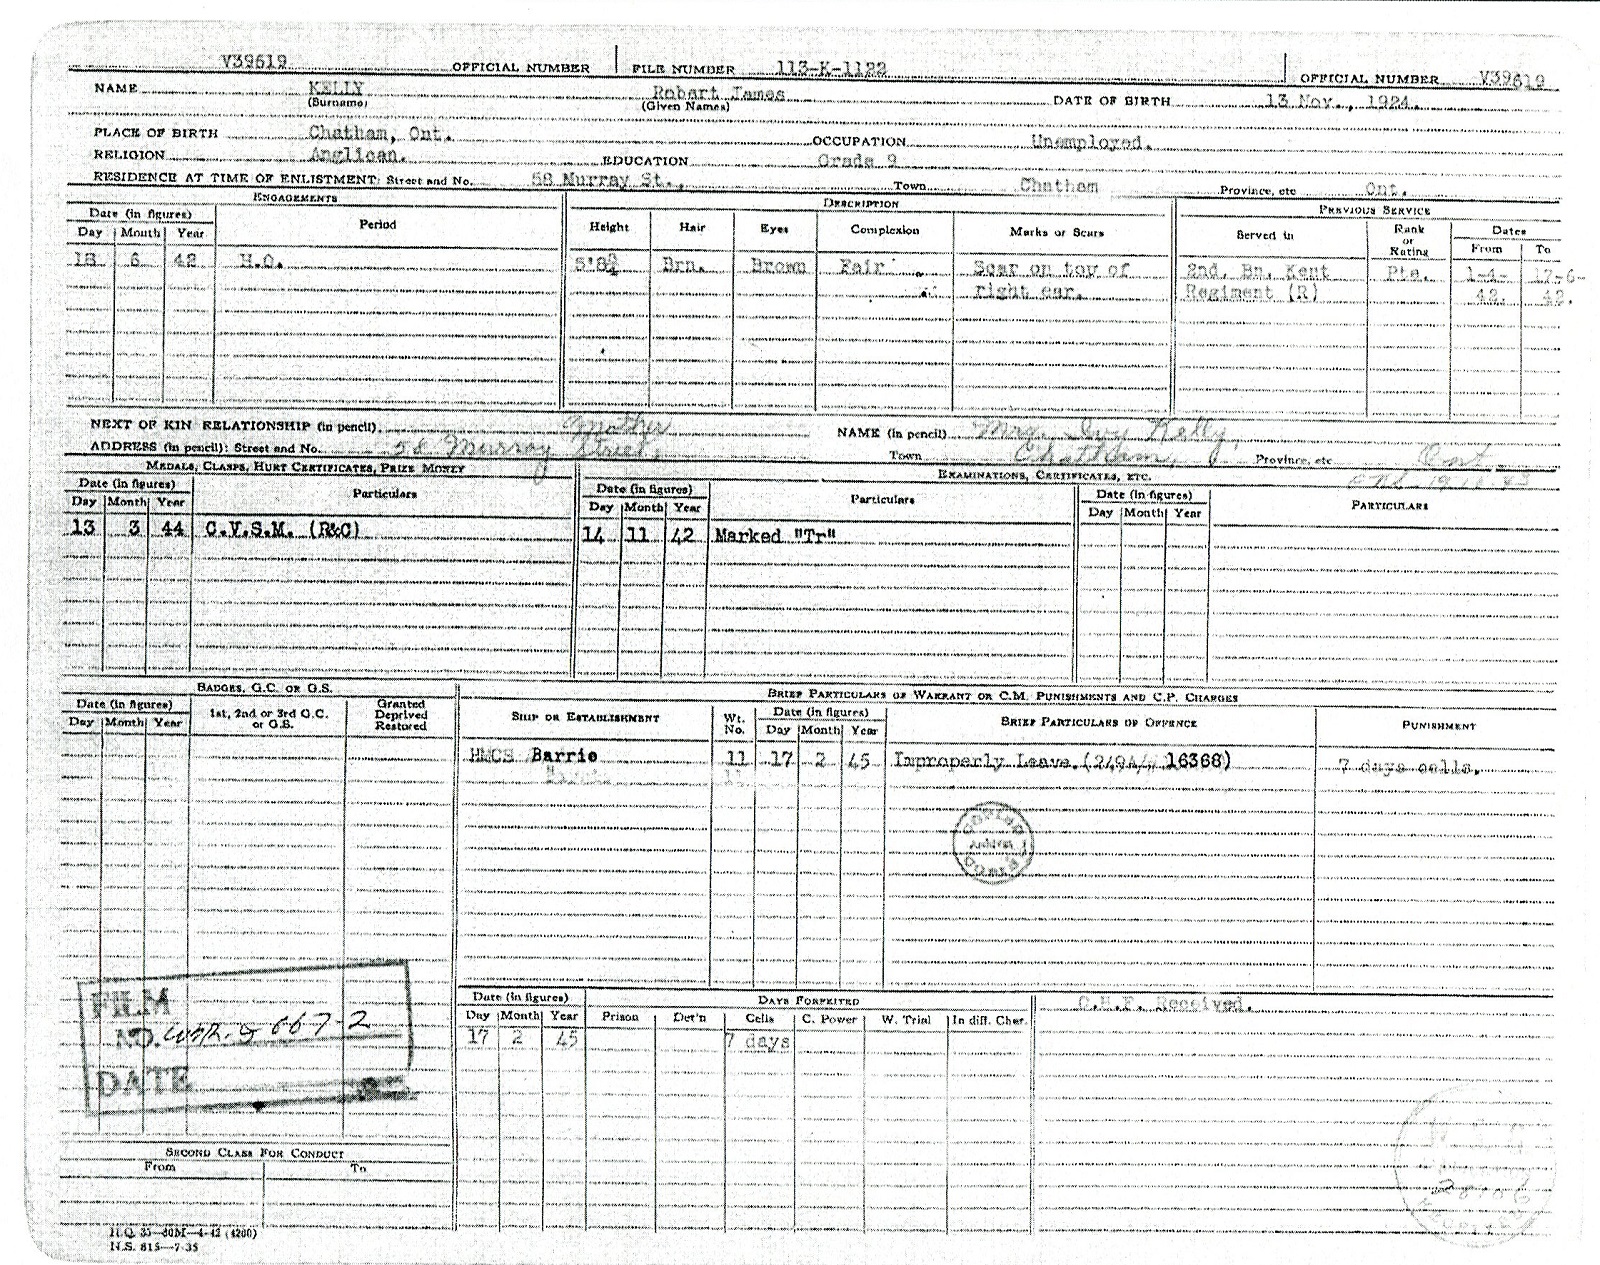 V39619 OFFICIAL NUMBER FILE NUMBER 113-K-1122 OFFICIAL NUMBER V39619
NAME KELLY Robert James DATE OF BIRTH 13 Nov., 1924.
(Surname) (Given Names)
PLACE OF BIRTH Chatham, Ont. OCCUPATION Unemployed.
RELIGION Anglican. EDUCATION Grade 9
RESIDENCE AT TIME OF ENLISTMENT: Street and No. 58 Murray St., Town Chatham Province, etc Ont.
ENGAGEMENTS DESCRIPTION PREVIOUS SERVICE
Date (in figures) Period Height Hair Eyes Complexion Marks or Scars Served in Rank or Rating Dates
Day Month Year From To
18 6 42 H.O. 5'8¾ Brn. Brown Fair Scar on top of 2nd. Bn. Kent Pte. 1-4- 17-6-
right ear. Regiment (R) 42. 42.
NEXT OF KIN RELATIONSHIP (in pencil) Mother NAME (in pencil) Mrs. Ivy Kelly,
ADDRESS (in pencil): Street and No. 58 Murray Street, Town Chatham, Province, etc Ont
MEDALS, CLASPS, HURT CERTIFICATES, PRIZE MONEY EXAMINATIONS, CERTIFICATES, ETC.
Date (in figures) Particulars Date (in figures) Particulars Date (in figures) PARTICULARS
Day Month Year Day Month Year Day Month Year
13 3 44 C.V.S.M. (R&C) 14 11 42 Marked "Tr"
BADGES, G.C. OR G.S. BRIEF PARTICULARS OF WARRANT OR C.M. PUNISHMENTS AND C.P. CHARGES
Date (in figures) 1st, 2nd or 3rd G.C. or G.S. Granted Deprived Restored SHIP OR ESTABLISHMENT Wt. No. Date (in figures) BRIEF PARTICULARS OF OFFENCE PUNISHMENT
Day Month Year Day Month Year
HMCS Barrie 11 17 2 45 Improperly Leave. 16368) 7 days cells.
FILM
NO.
DATE
Date (in figures) DAYS FORFEITED C.H.F. Received.
Day Month Year Prison Det'n Cells C. Power W. Trial In diff. Cher.
17 2 45 7 days
SECOND CLASS FOR CONDUCT
From To
H.Q. 35—80M—4-42 (4200)
N.S. 815—7-35